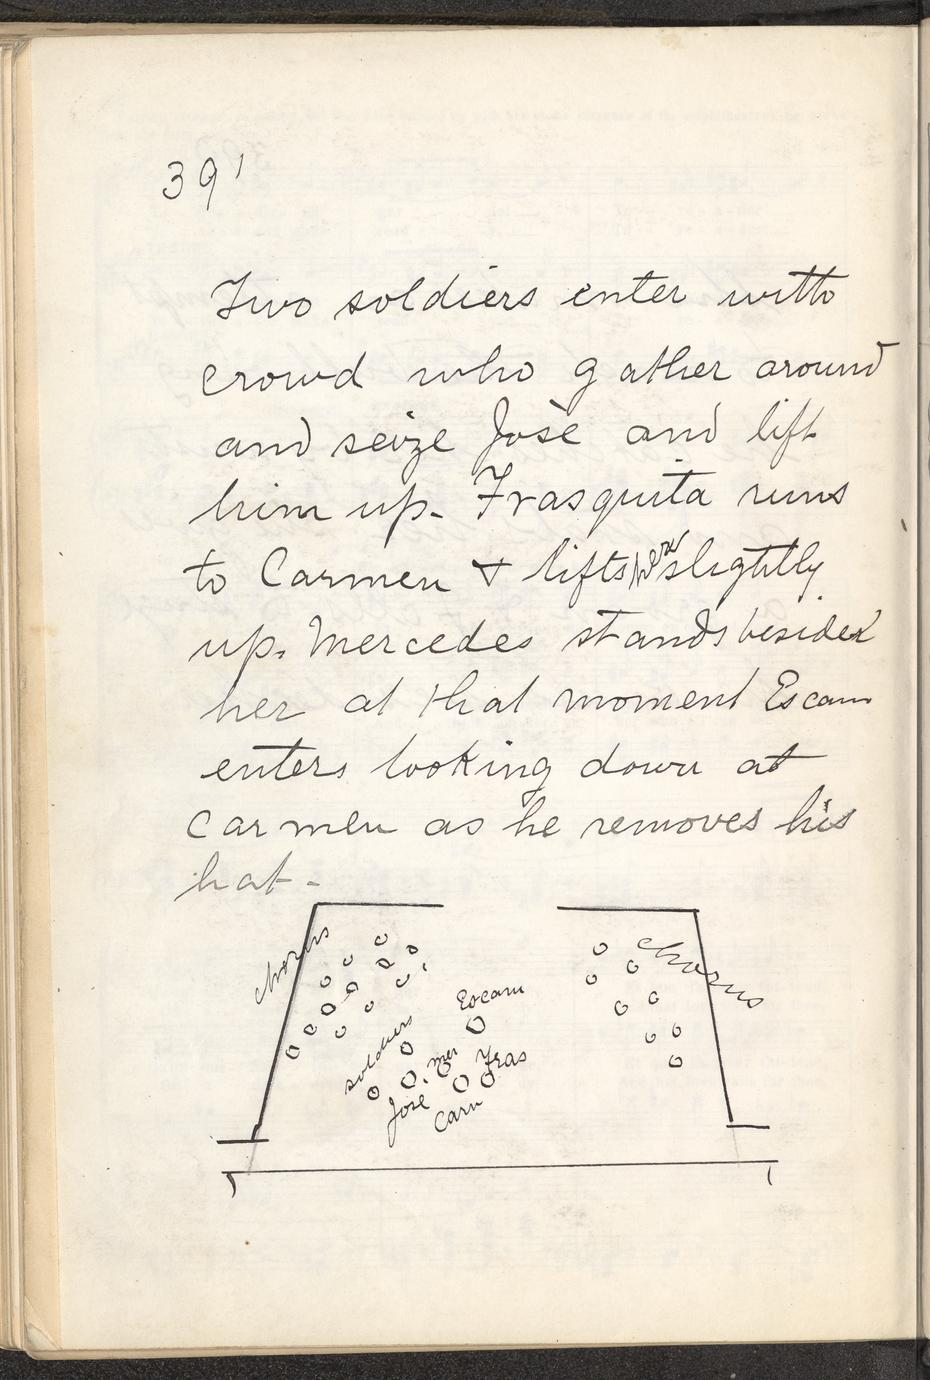 391
Two soldiers enter with
crowd who gather around
and seize José and lift
him up. Frasquita runs
to Carmen & lifts her slightly
up. Mercedes stands besides
her at that moment Escam
enters looking down at
Carmen as he removes his
hat.
chorus
chorus
Escam
soldiers
mer
Fras
José
Carm